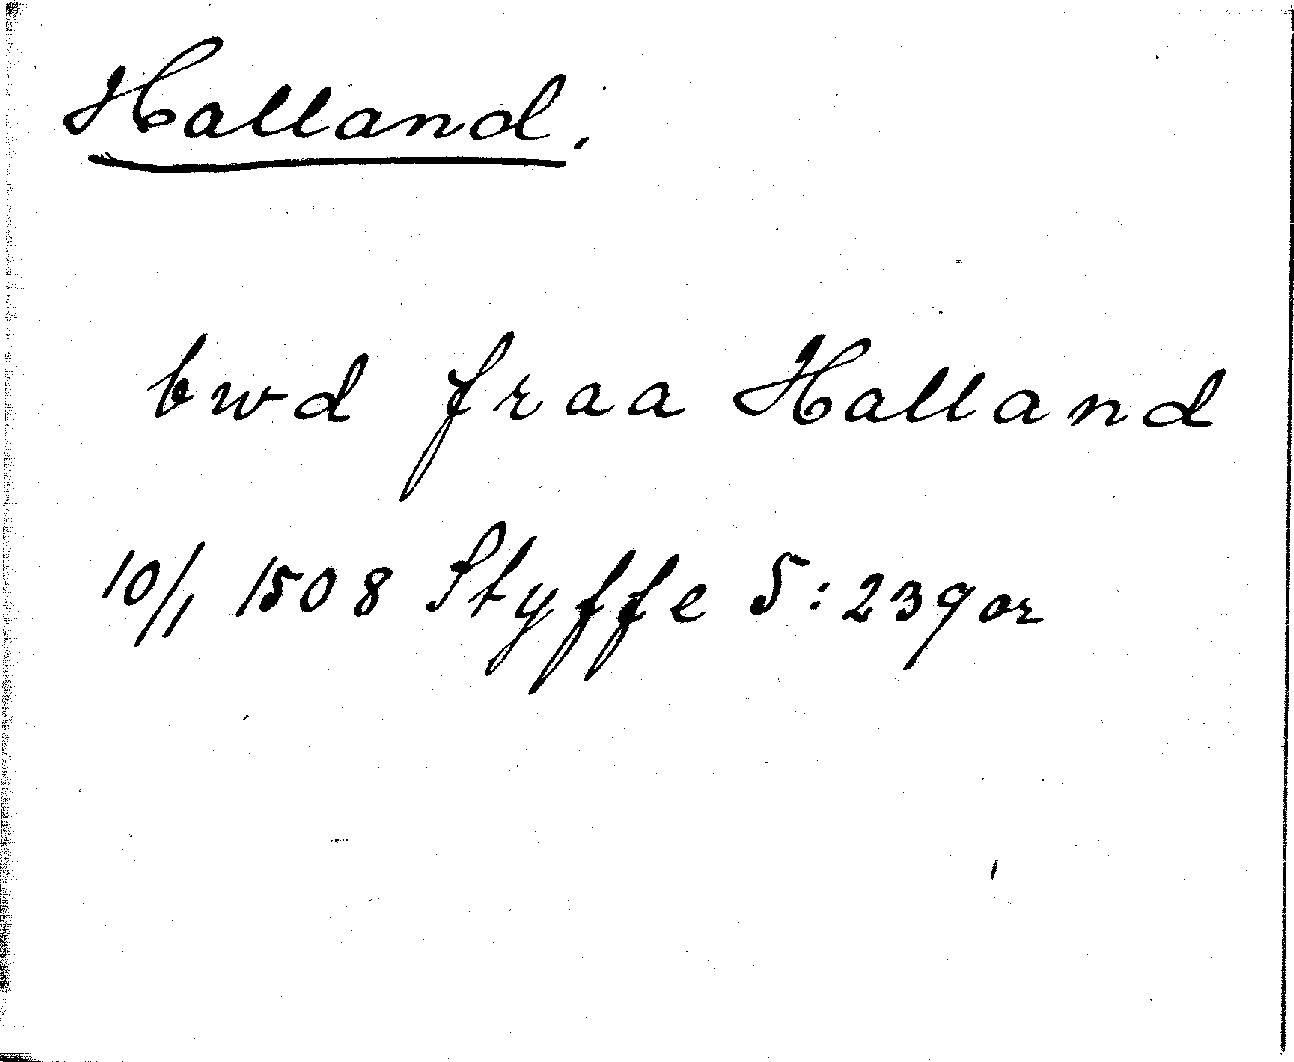 Halland.
bwd fraa Halland
10/1 1508 Styffe 5:239 or